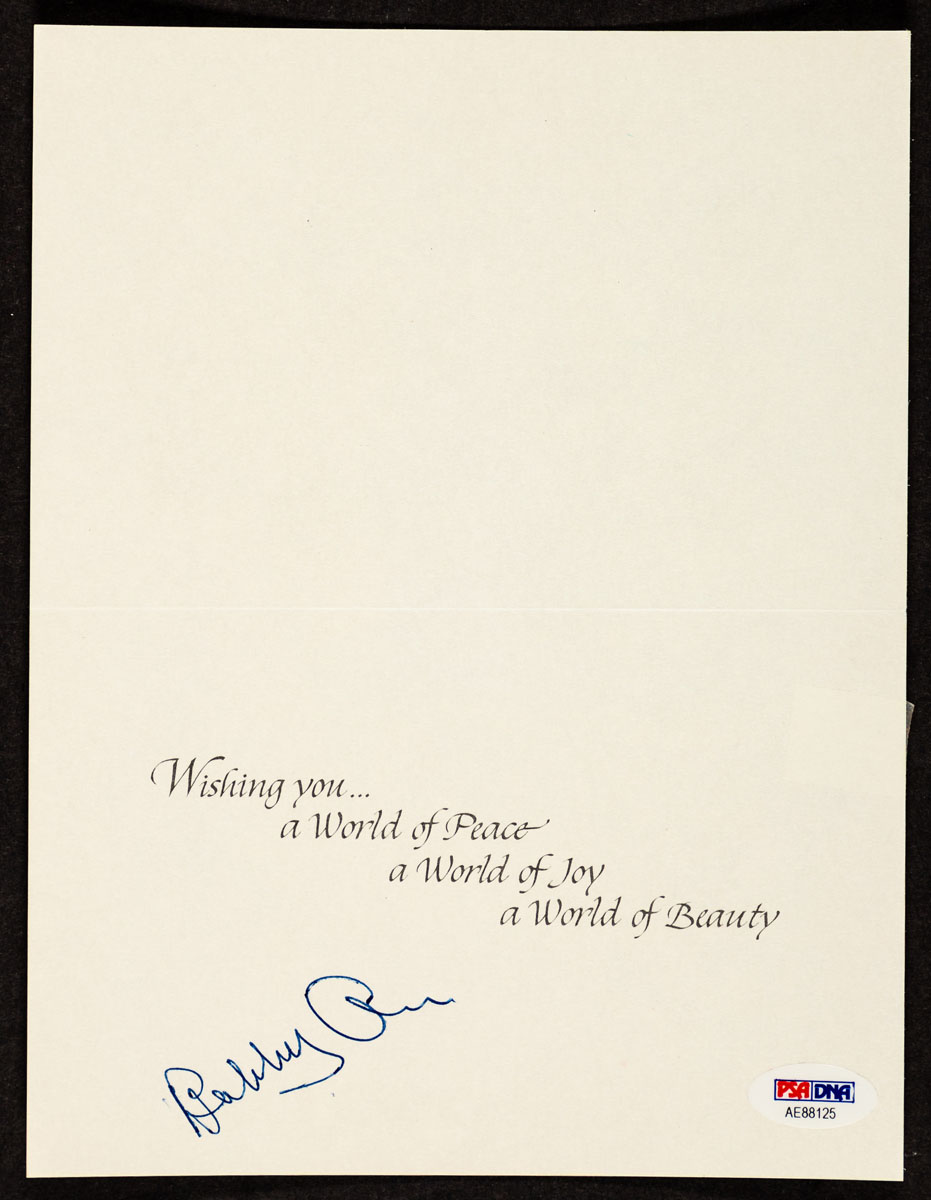 Wishing you...
a World of Peace
a World of Joy
a World of Beauty
Bobby
PSA DNA
AE88125